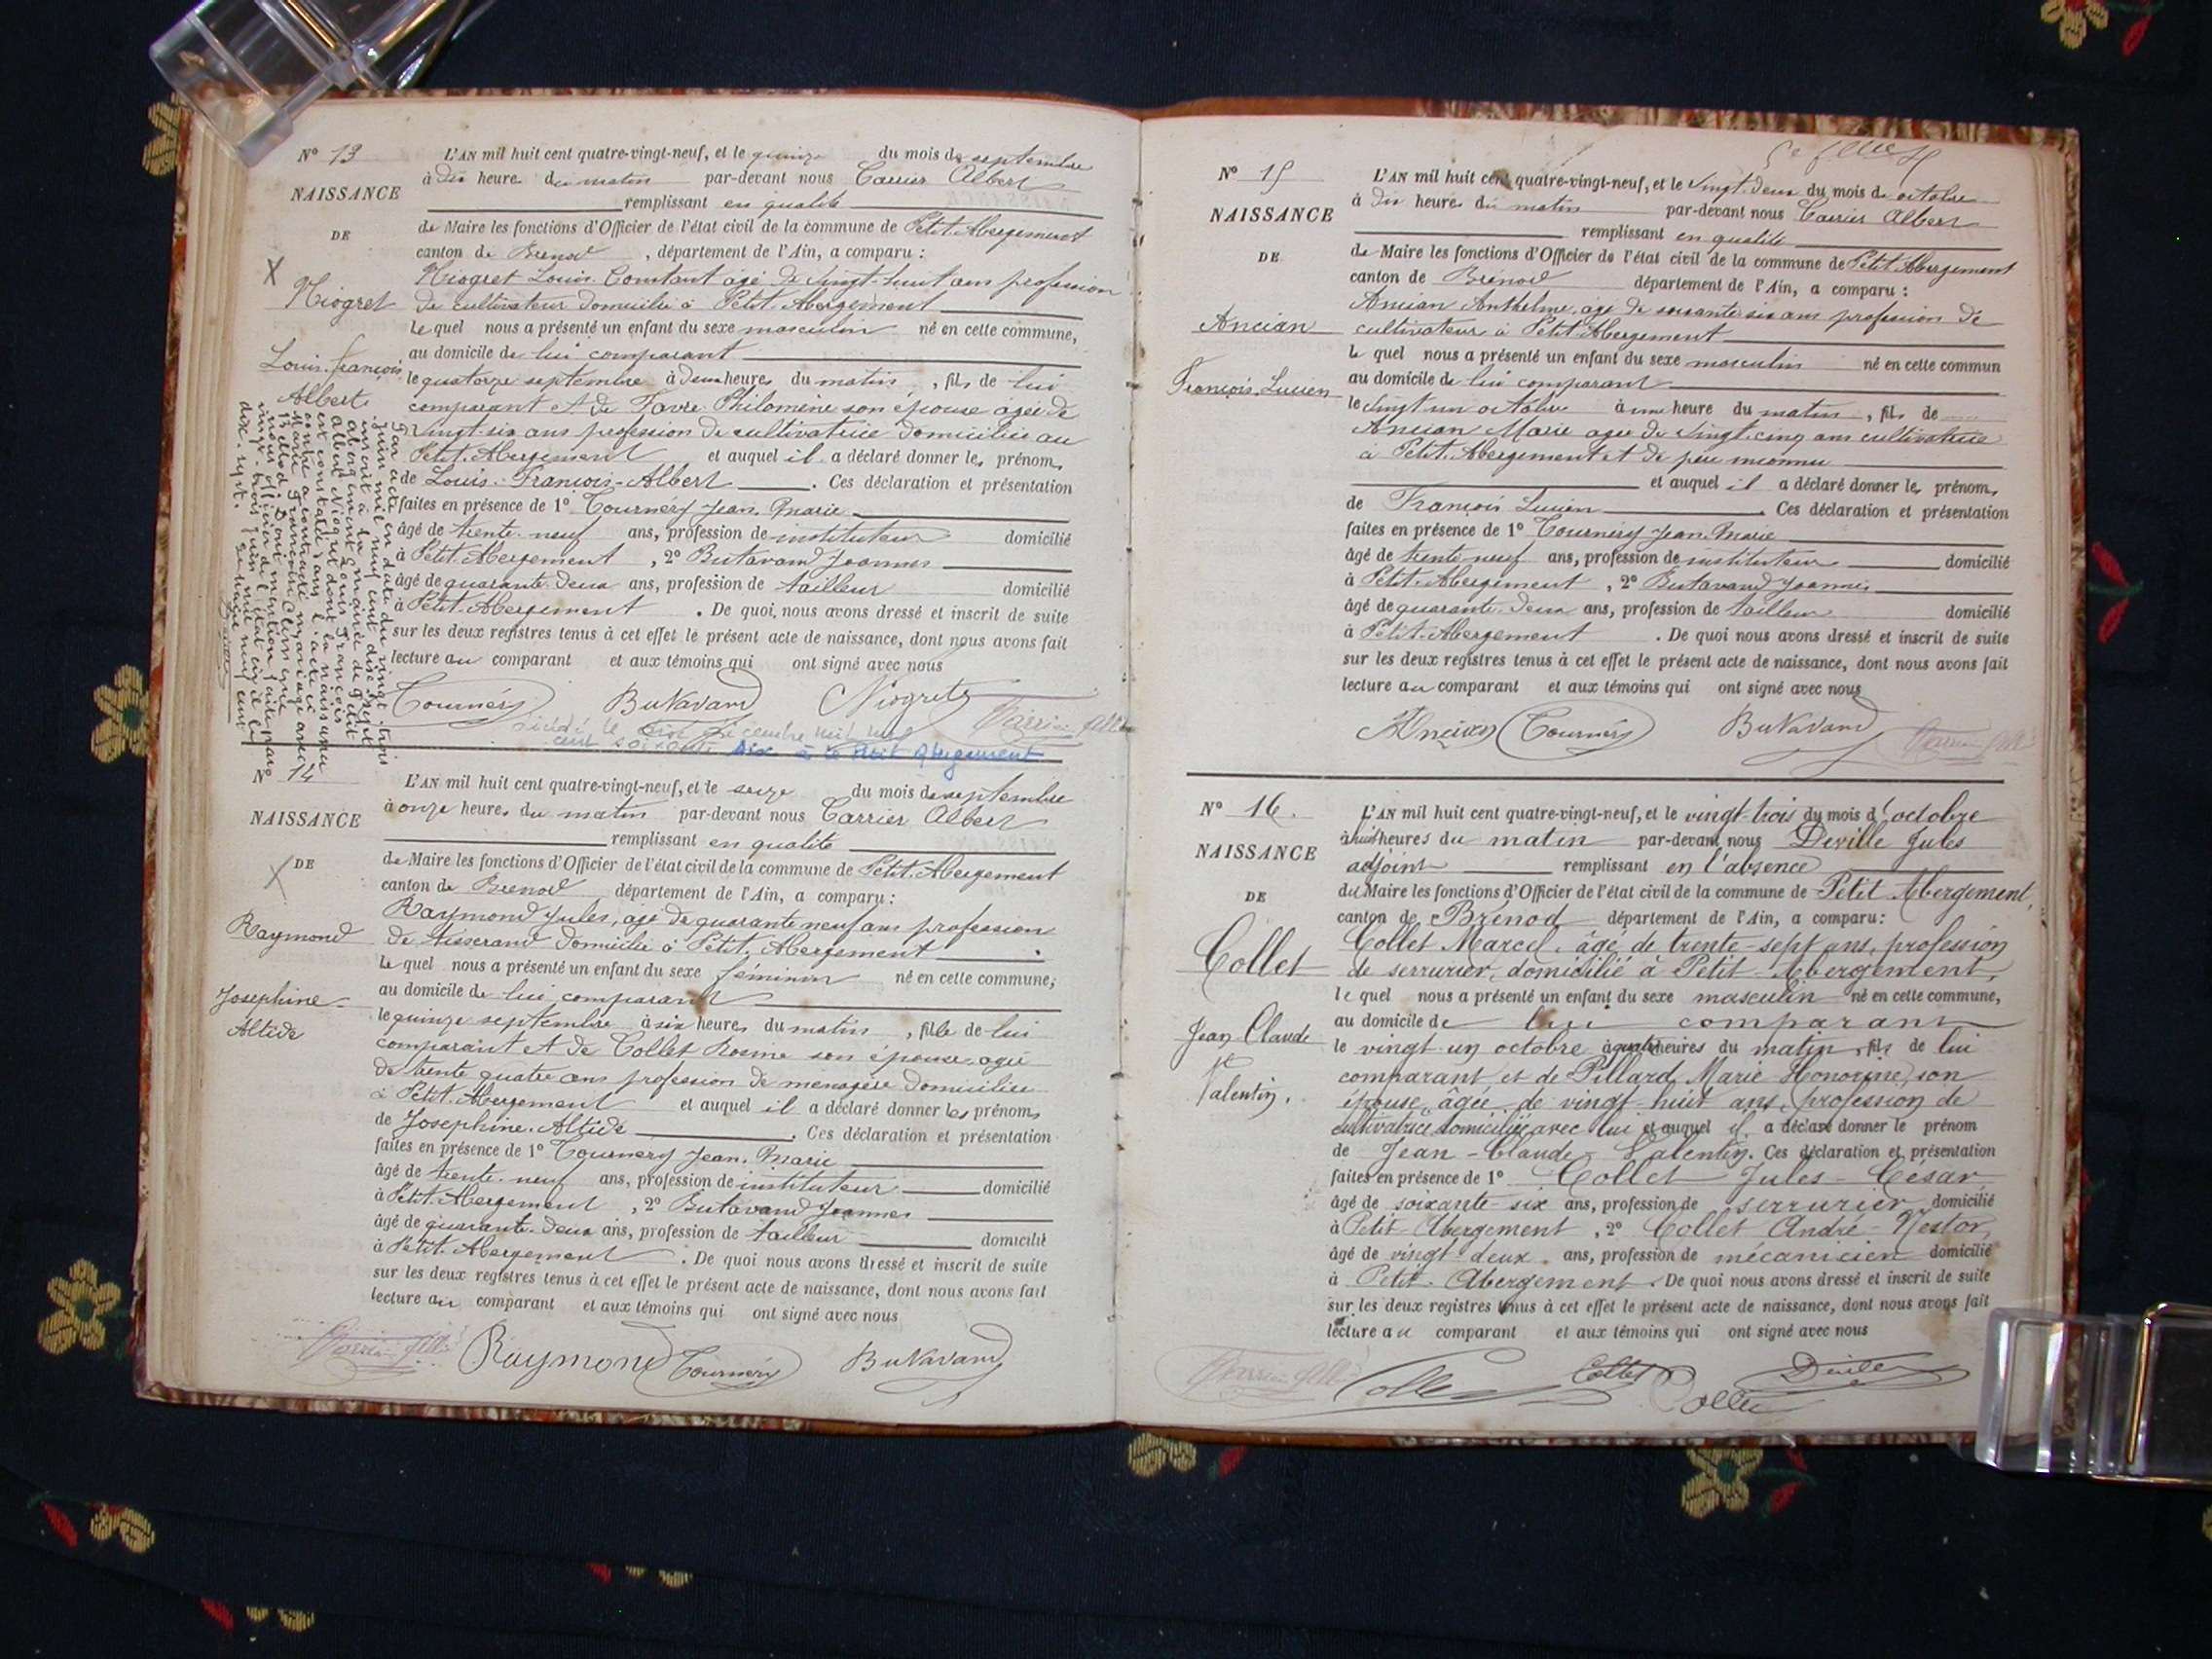 N° 13
NAISSANCE
DE
X
Niogret
Louis-François
Albert
L'AN mil huit cent quatre-vingt-neuf, et le quinze du mois de septembre
à dix heures du matin par-devant nous Carrier Albert
remplissant en qualité
de Maire les fonctions d'Officier de l'état civil de la commune de Petit-Abergement
canton de Brénod, département de l'Ain, a comparu :
Niogret Louis-Constant âgé de vingt-huit ans profession
de cultivateur domicilié à Petit-Abergement
lequel nous a présenté un enfant du sexe masculin né en cette commune,
au domicile de lui comparant
le quatorze septembre à deux heures du matin, fils de lui
comparant et de Favre Philomène son épouse âgée de
vingt-six ans profession de cultivatrice domiciliée au
Petit-Abergement et auquel il a déclaré donner les prénoms
de Louis-François-Albert. Ces déclaration et présentation
faites en présence de 1° Tournéry Jean-Marie
âgé de trente-neuf ans, profession de instituteur domicilié
à Petit-Abergement, 2° Butavand Joannes
âgé de quarante-deux ans, profession de tailleur domicilié
à Petit-Abergement. De quoi nous avons dressé et inscrit de suite
sur les deux registres tenus à cet effet le présent acte de naissance, dont nous avons fait
lecture au comparant et aux témoins qui ont signé avec nous
Tournéry Butavand Niogret Carrier Alb
Par acte en date du vingt-trois
juin mil neuf cent dix-sept
inscrit à la mairie de Petit
Abergement Louis François
Albert Niogret dont la naissance
est constatée dans l'acte ci
contre a contracté mariage avec
Marie
nous officier de l'état civil le
vingt-trois juin mil neuf cent
dix-sept. Le Maire
décédé le décembre mil neuf
cent soixante dix à le Petit Abergement
N° 14
NAISSANCE
DE
X
Raymond
Josephine-
Altide
L'AN mil huit cent quatre-vingt-neuf, et le seize du mois de septembre
à onze heures du matin par-devant nous Carrier Albert
remplissant en qualité
de Maire les fonctions d'Officier de l'état civil de la commune de Petit-Abergement
canton de Brénod département de l'Ain, a comparu :
Raymond Jules, âgé de quarante neuf ans profession
de tisserand domicilié à Petit-Abergement
lequel nous a présenté un enfant du sexe féminin né en cette commune,
au domicile de lui comparant
le quinze septembre à six heures du matin, fille de lui
comparant et de Collet Rosine son épouse âgée
de trente quatre ans profession de menagère domiciliée
à Petit-Abergement et auquel il a déclaré donner les prénoms
de Josephine-Altide. Ces déclaration et présentation
faites en présence de 1° Tournéry Jean-Marie
âgé de trente-neuf ans, profession de instituteur domicilié
à Petit-Abergement, 2° Butavand Joannes
âgé de quarante-deux ans, profession de tailleur domicilié
à Petit-Abergement. De quoi nous avons dressé et inscrit de suite
sur les deux registres tenus à cet effet le présent acte de naissance, dont nous avons fait
lecture au comparant et aux témoins qui ont signé avec nous
Carrier Alb Raymond Tournéry Butavand
N° 15
NAISSANCE
DE
Ancian
François-Lucien
L'AN mil huit cent quatre-vingt-neuf, et le vingt-deux du mois de octobre
à dix heures du matin par-devant nous Carrier Albert
remplissant en qualité
de Maire les fonctions d'Officier de l'état civil de la commune de Petit-Abergement
canton de Brénod département de l'Ain, a comparu :
Ancian Anthelme, âgé de soixante-six ans profession de
cultivateur à Petit-Abergement
lequel nous a présenté un enfant du sexe masculin né en cette commun
au domicile de lui comparant
le vingt un octobre à une heure du matin, fils de
Ancian Marie âgée de vingt-cinq ans cultivatrice
à Petit-Abergement et de père inconnu
et auquel il a déclaré donner les prénoms
de François Lucien. Ces déclaration et présentation
faites en présence de 1° Tournéry Jean-Marie
âgé de trente-neuf ans, profession de instituteur domicilié
à Petit-Abergement, 2° Butavand Joannes
âgé de quarante-deux ans, profession de tailleur domicilié
à Petit-Abergement. De quoi nous avons dressé et inscrit de suite
sur les deux registres tenus à cet effet le présent acte de naissance, dont nous avons fait
lecture au comparant et aux témoins qui ont signé avec nous
Ancian Tournéry Butavand Carrier Alb
N° 16.
NAISSANCE
DE
Collet
Jean Claude
Valentin.
L'AN mil huit cent quatre-vingt-neuf, et le vingt-trois du mois d'octobre
à huit heures du matin par-devant nous Deville Jules
adjoint remplissant en l'absence
du Maire les fonctions d'Officier de l'état civil de la commune de Petit Abergement,
canton de Brénod département de l'Ain, a comparu :
Collet Marcel, âgé de trente-sept ans, profession
de serrurier, domicilié à Petit-Abergement,
lequel nous a présenté un enfant du sexe masculin né en cette commune,
au domicile de lui comparant
le vingt-un octobre à quatre heures du matin, fils de lui
comparant et de Pillard Marie-Honorine, son
épouse, âgée de vingt-huit ans, profession de
cultivatrice domiciliée avec lui et auquel il a déclaré donner le prénom
de Jean-Claude-Valentin. Ces déclaration et présentation
faites en présence de 1° Collet Jules-César,
âgé de soixante-six ans, profession de serrurier domicilié
à Petit-Abergement, 2° Collet André-Nestor,
âgé de vingt-deux ans, profession de mécanicien domicilié
à Petit-Abergement. De quoi nous avons dressé et inscrit de suite
sur les deux registres tenus à cet effet le présent acte de naissance, dont nous avons fait
lecture au comparant et aux témoins qui ont signé avec nous
Carrier Alb Collet Collet Collet Deville